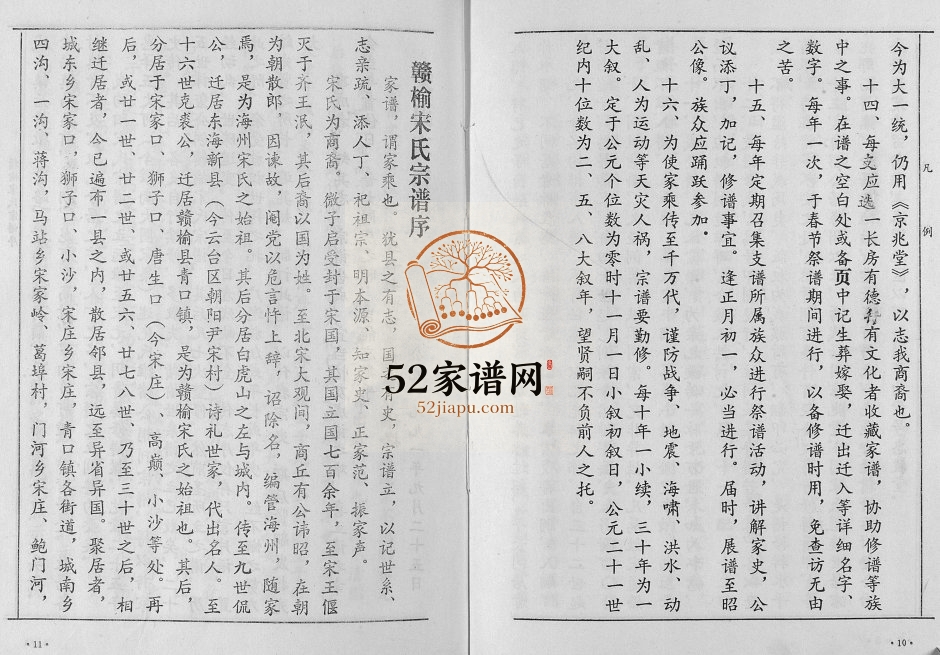 凡例
今为大一统，仍用《京兆堂》，以志我商裔也。
十四、每支应选一长房有德行有文化者收藏家谱，协助修谱等族
中之事。在谱之空白处或备页中记生葬嫁娶，迁出迁入等详细名字、
数字。每年一次，于春节祭谱期间进行，以备修谱时用，免查访无由
之苦。
十五、每年定期召集支谱所属族众进行祭谱活动，讲解家史，公
议添丁，加记，修谱事宜。逢正月初一，必当进行。届时，展谱至昭
公像。族众应踊跃参加。
十六、为使家乘传至千万代，谨防战争、地震、海啸、洪水、动
乱、人为运动等天灾人祸，宗谱要勤修。每十年一小续，三十年为一
大叙。定于公元个位数为零时十一月一日小叙初叙日，公元二十一世
纪内十位数为二、五、八大叙年，望贤嗣不负前人之托。
·10·
赣榆宋氏宗谱序
家谱，谓家乘也。犹县之有志，国之有史，宗谱立，以记世系、
志亲疏、添人丁、祀祖宗、明本源、知家史、正家范、振家声。
宋氏为商裔。微子启受封于宋国，其国立国七百余年，至宋王偃
灭于齐王泯，其后裔以国为姓。至北宋大观间，商丘有公讳昭，在朝
为朝散郎，因谏故，阉党以危言忤上辞，诏除名，编管海州，随家
焉，是为海州宋氏之始祖。其后分居白虎山之左与城内。传至九世侃
公，迁居东海新县（今云台区朝阳尹宋村）诗礼世家，代出名人。至
十六世克裘公，迁居赣榆县青口镇，是为赣榆宋氏之始祖也。其后，
分居于宋家口、狮子口、唐生口（今宋庄）、高巅、小沙等处。再
后，或廿一世、廿二世、或廿五六、廿七八世、乃至三十世之后，相
继迁居者，今已遍布一县之内，散居邻县，远至异省异国。聚居者，
城东乡宋家口，狮子口、小沙，宋庄乡宋庄，青口镇各街道，城南乡
四沟、一沟、蒋沟，马站乡宋家岭、葛埠村，门河乡宋庄、鲍门河，
·11·
52家谱网
52jiapu.com